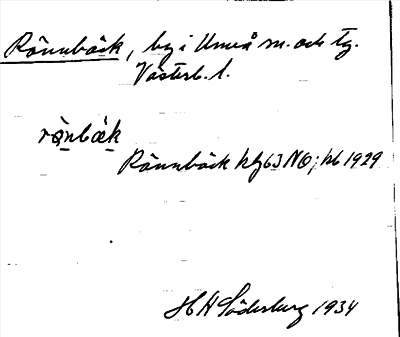 Rönnbäck, by i Umeå sn. och tg.
Västerb. l.
rö̀nbäk
Rönnbäck ktbl 63 NO; kb 1929
H H Söderburg 1934